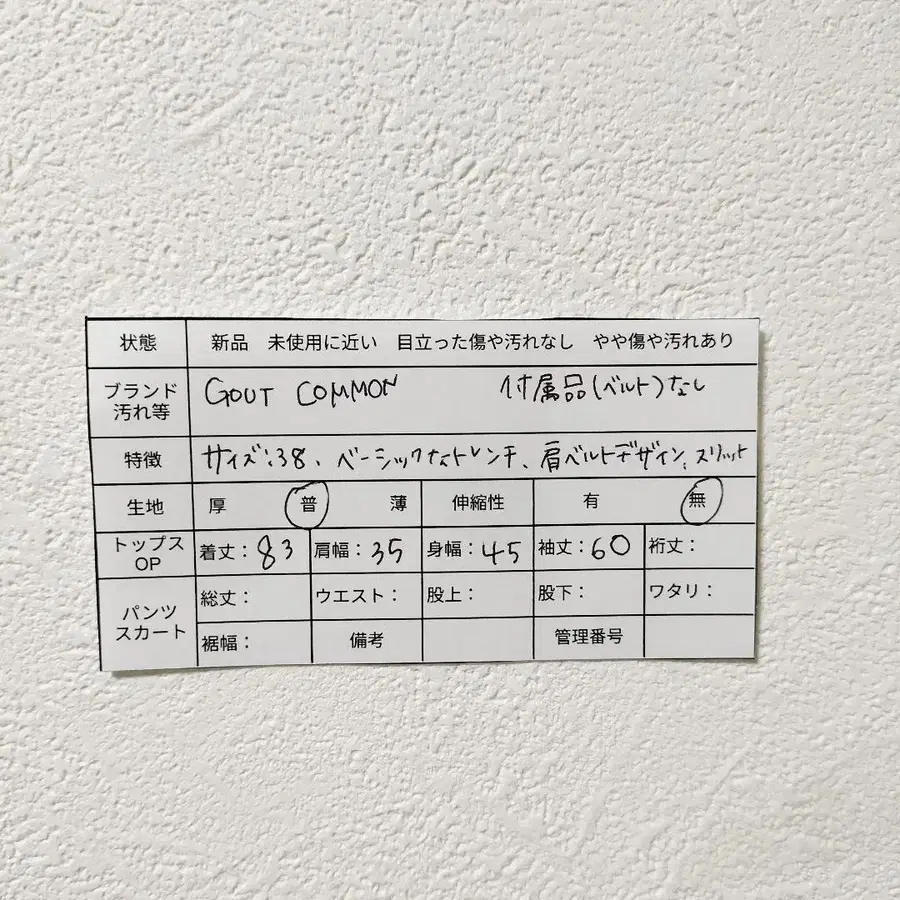 状態 新品 未使用に近い 目立った傷や汚れなし やや傷や汚れあり
ブランド 汚れ等 GOUT COMMON 付属品(ベルト)なし
特徴 サイズ:38、ベーシックなトレンチ、肩ベルトデザイン、スリット
生地 厚 普 薄 伸縮性 有 無
トップス OP 着丈:83 肩幅:35 身幅:45 袖丈:60 裄丈:
パンツ スカート 総丈: ウエスト: 股上: 股下: ワタリ:
裾幅: 備考 管理番号